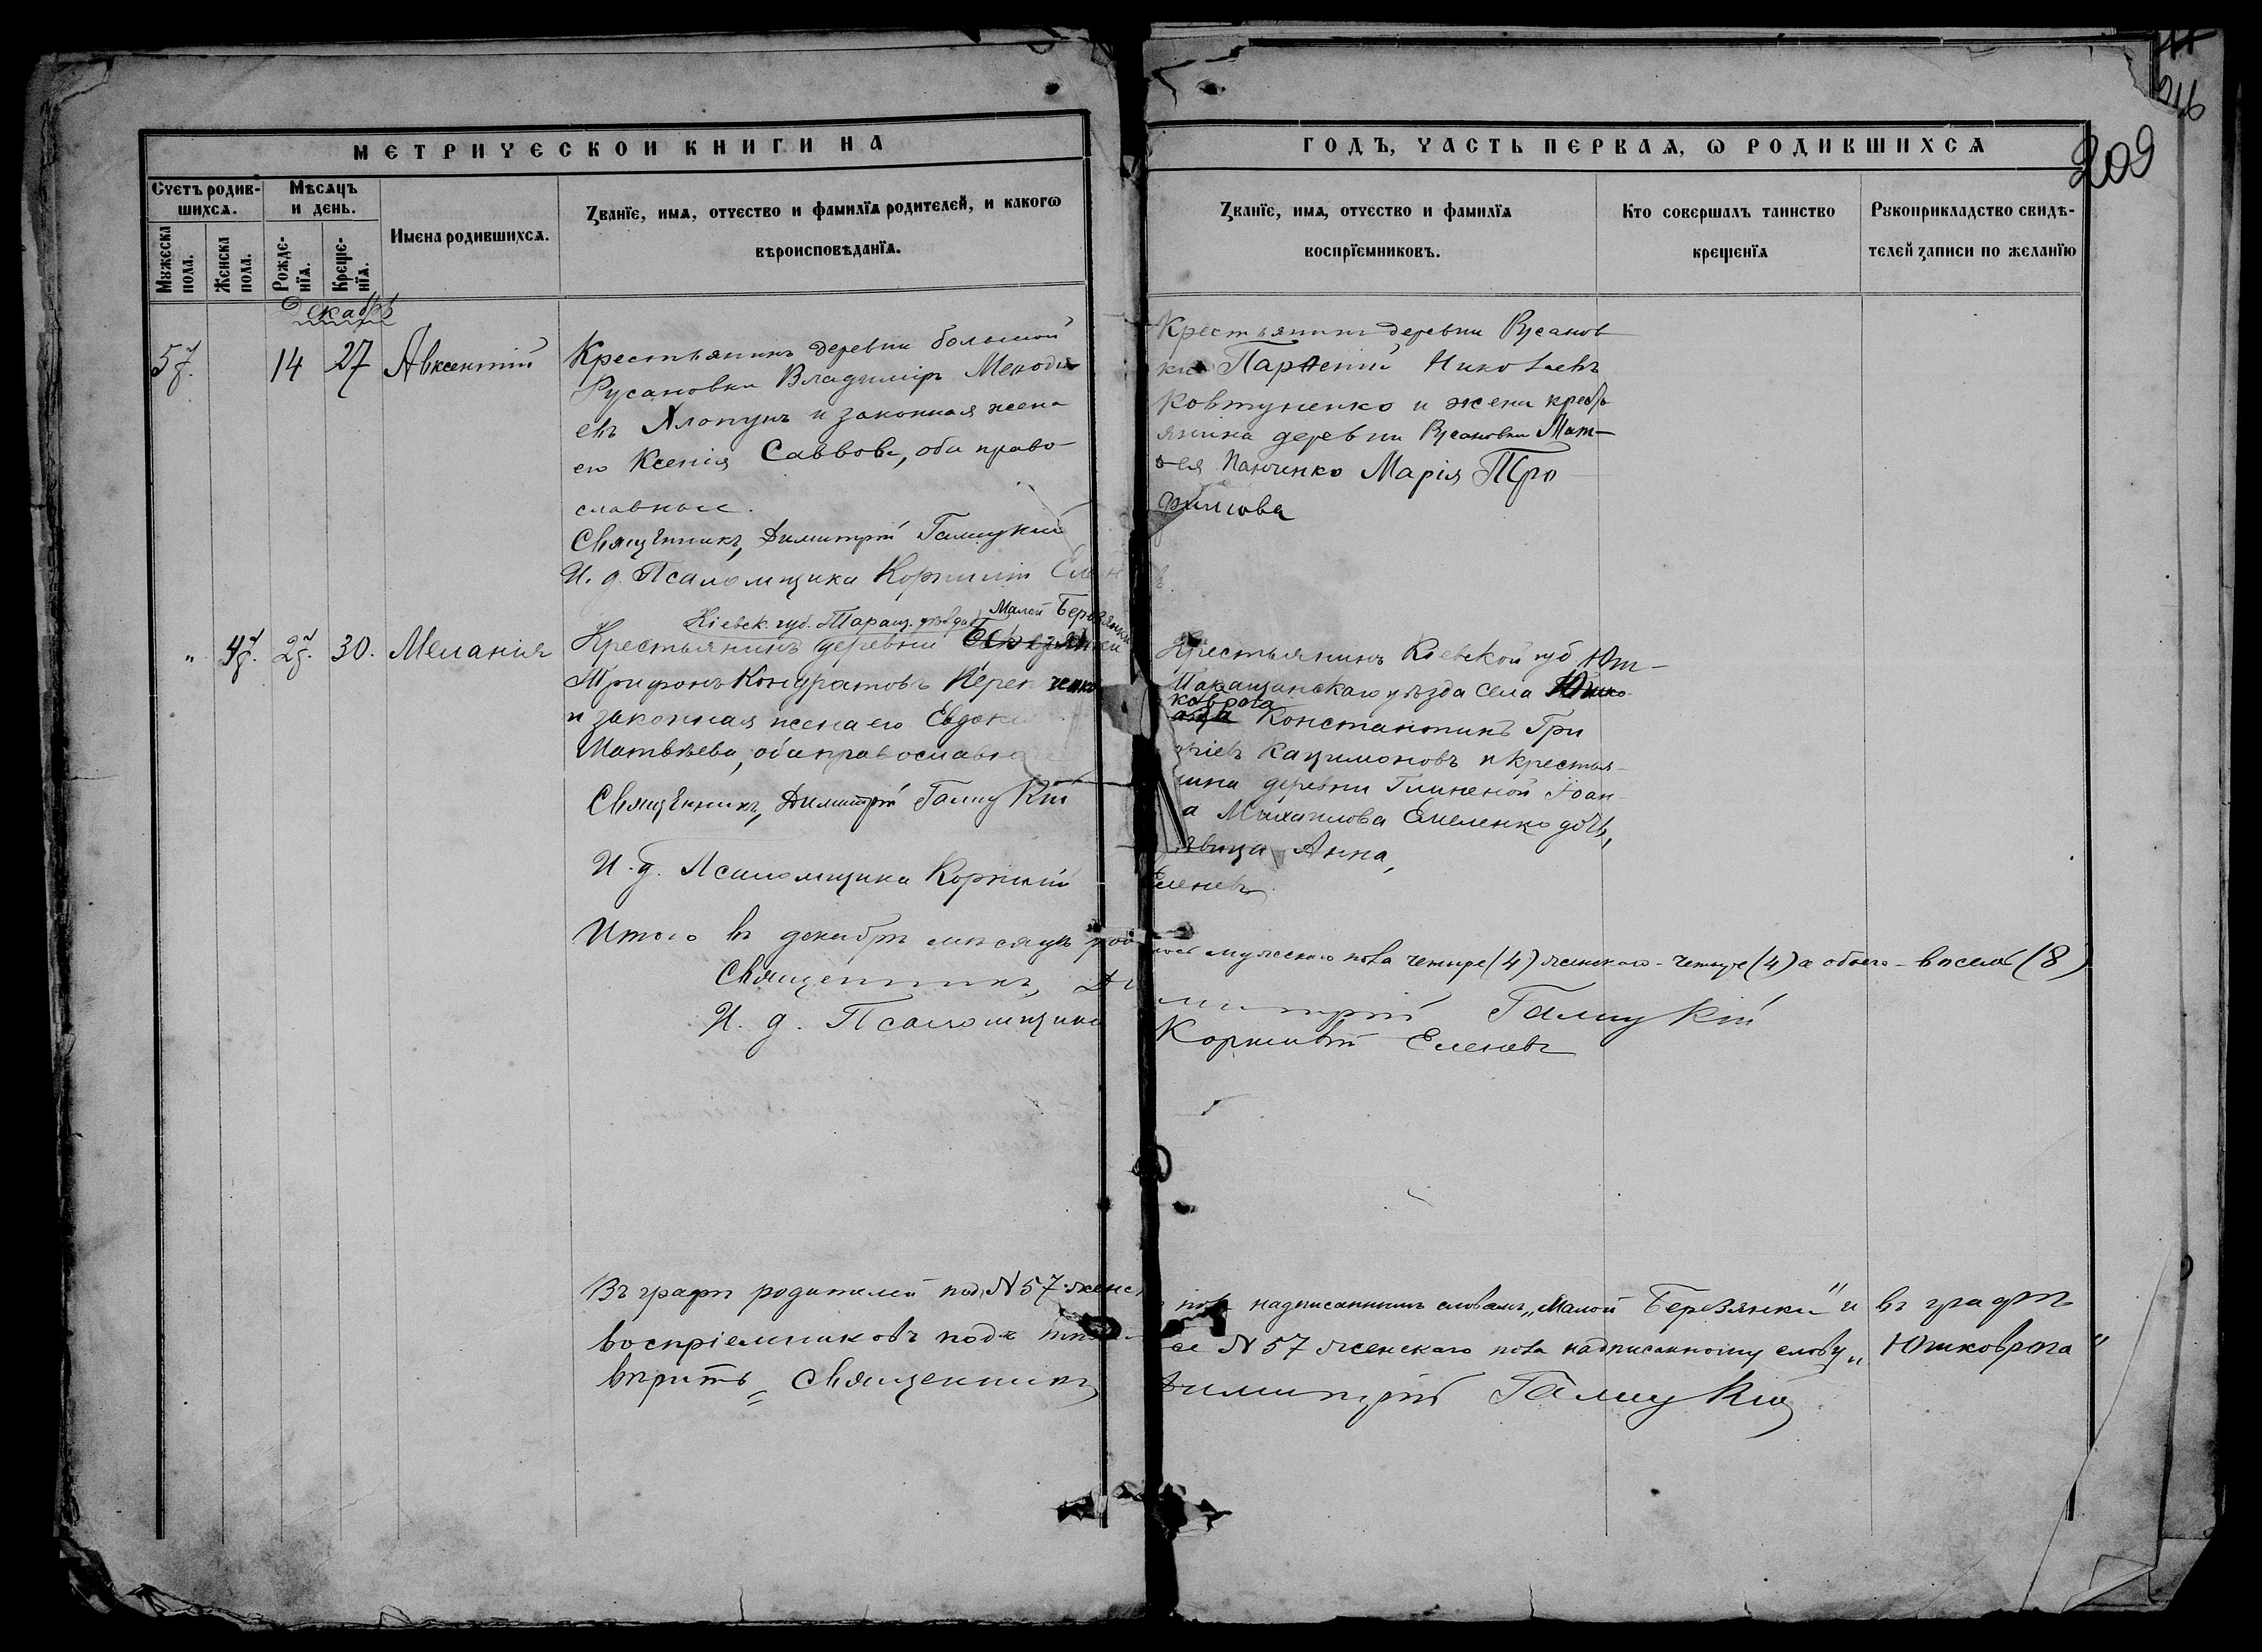 209
МЕТРИЧЕСКОЙ КНИГИ НА
ГОДЪ, ЧАСТЬ ПЕРВАѦ, Ѡ РОДИВШИХСѦ
Счетъ родив-
шихсѧ.
Мѣсѧцъ
и день.
Мужеска
пола.
Женска
пола.
Рожде-
нїѧ.
Креще-
нїѧ.
Имена родившихсѧ.
Званїе, имѧ, отчество и фамилїѧ родителей, и какогѡ
вѣроисповѣданїѧ.
Званїе, имѧ, отчество и фамилїѧ
воспрїемниковъ.
Кто совершалъ таинство
крещенїѧ
Рукоприкладство свидѣ-
телей записи по желанїю
Декабрь
14 27 Авксентій
Крестьянинъ деревни большой
Русановки Владиміръ Меѳоді
евъ Хлопунъ и законная жена
его Ксенія Саввова, оба право
славные.
Священникъ, Димитрій Галицкій
И. д. Псаломщика Корнилій
Крестьянинъ деревни Русанов
ки Парѳеній Николаевъ
Ковтуненко и жена кресть
янина деревни Русановки Мат-
ѳея Панченко Марія Тро
фимова
30. Меланія
Кіевск. губ. Таращ. уѣзда Малой Березянки
Крестьянинъ деревни
Трифонъ Кондратовъ
и законная жена его Евдокі
Матвѣева, оба православн
Священникъ, Димитрій Галицкій
И. д. Псаломщика Корнилій
Крестьянинъ Кіевской губ Юш-
Таращанскаго уѣзда села
коврога Константинъ Гри
и крестья-
нина деревни Глиненой Іоан-
а Михаилова Емеленко дочь,
ѣвица Анна,
Еленевъ
Итого въ декабрѣ мѣсяцѣ роди
лось мужескаго пола четыре (4) женскаго - четыре (4) а обоего - восемь (8)
Священникъ, Ди
митрій Галицкій
И. д. Псаломщика
Корнилій Еленевъ
Въ графѣ родителей под. № 57 женск
пола надписаннымъ словамъ „Малой Березянки" и въ графѣ
воспріемниковъ подъ
№ 57 женскаго пола надписанному слову „Юшковрога"
вѣрить = Священникъ
Димитрій Галицкій